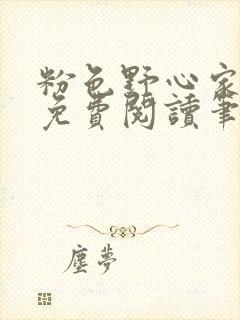 粉色野心家
免費閱讀筆
塵夢